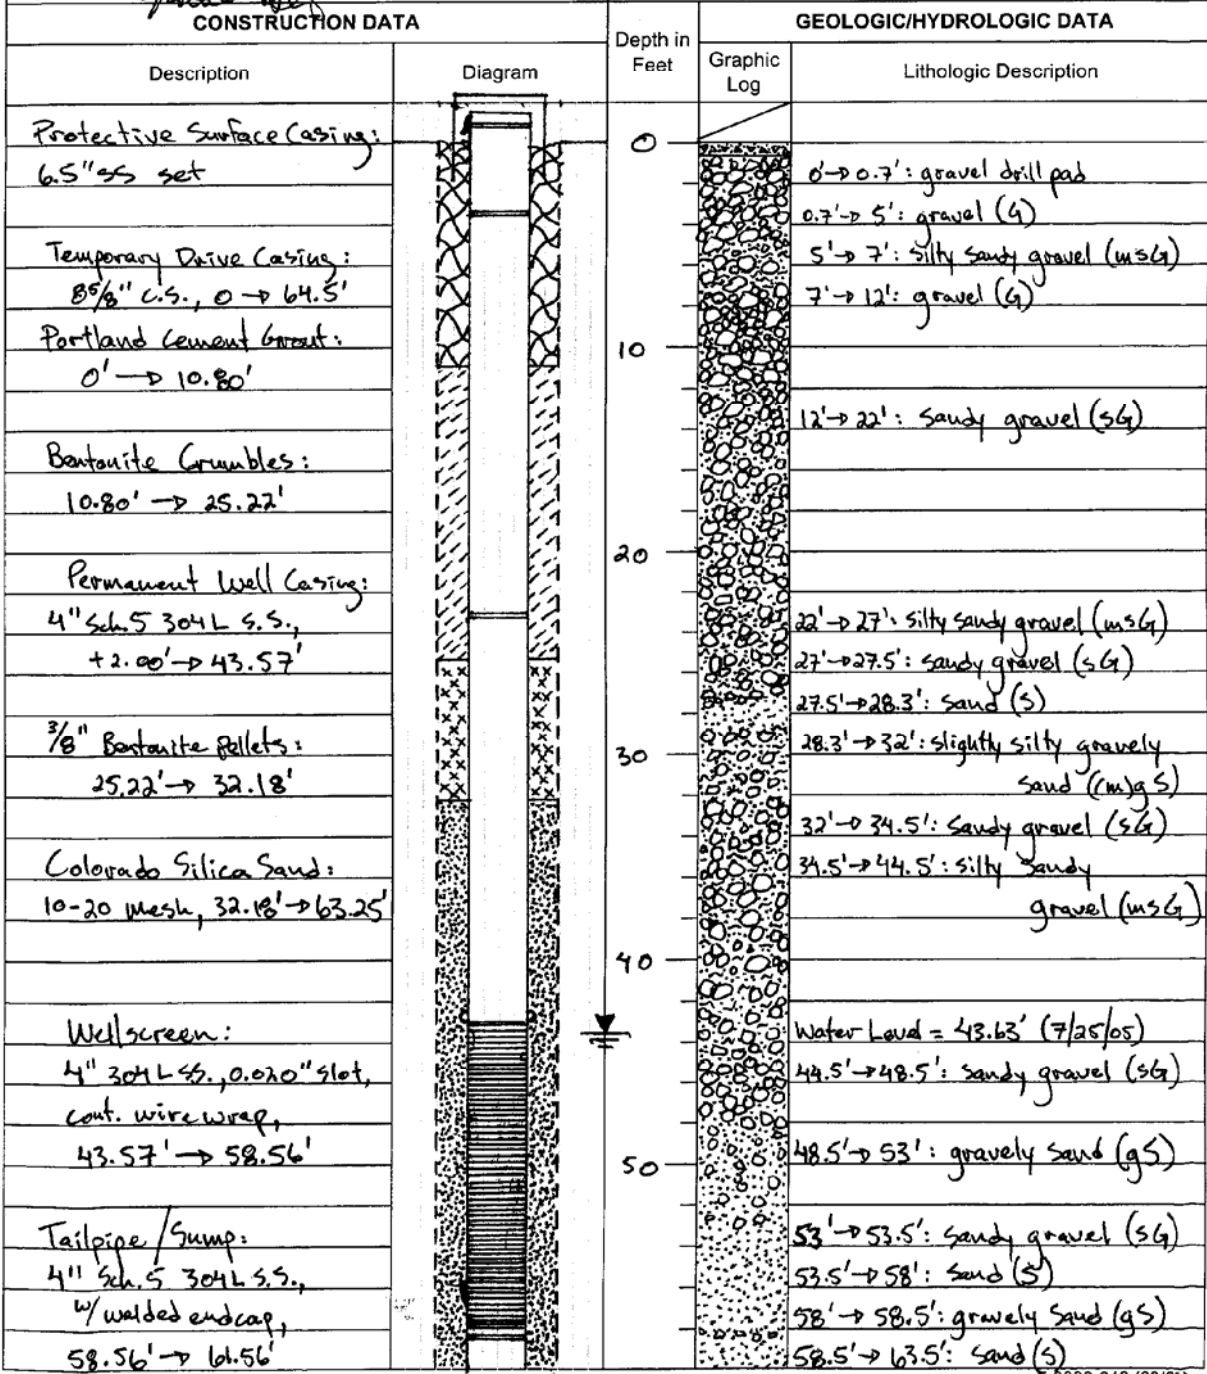 CONSTRUCTION DATA
GEOLOGIC/HYDROLOGIC DATA
Description
Diagram
Depth in
Feet
Graphic
Log
Lithologic Description
Protective Surface Casing:
6.5" ss set
Temporary Drive Casing:
8 5/8" C.S., 0 → 64.5'
Portland Cement Grout:
0' → 10.80'
Bentonite Crumbles:
10.80' → 25.22'
Permanent Well Casing:
4" Sch. 5 304L S.S.,
+2.00' → 43.57'
3/8" Bentonite Pellets:
25.22' → 32.18'
Colorado Silica Sand:
10-20 Mesh, 32.18' → 63.25'
Wellscreen:
4" 304L SS., 0.020" slot,
cont. wire wrap,
43.57' → 58.56'
Tailpipe/Sump:
4" Sch. 5 304L S.S.,
w/ welded endcap,
58.56' → 61.56'
0
10
20
30
40
50
0' → 0.7': gravel drill pad
0.7' → 5': gravel (G)
5' → 7': silty sandy gravel (msG)
7' → 12': gravel (G)
12' → 22': Sandy gravel (sG)
22' → 27': silty sandy gravel (msG)
27' → 27.5': sandy gravel (sG)
27.5' → 28.3': Sand (S)
28.3' → 32': slightly silty gravely
sand ((m)gS)
32' → 34.5': Sandy gravel (sG)
34.5' → 44.5': silty Sandy
gravel (msG)
Water Level = 43.63' (7/25/05)
44.5' → 48.5': sandy gravel (sG)
48.5' → 53': gravely Sand (gS)
53' → 53.5': Sandy gravel (sG)
53.5' → 58': Sand (S)
58' → 58.5': gravely Sand (gS)
58.5' → 63.5': Sand (S)